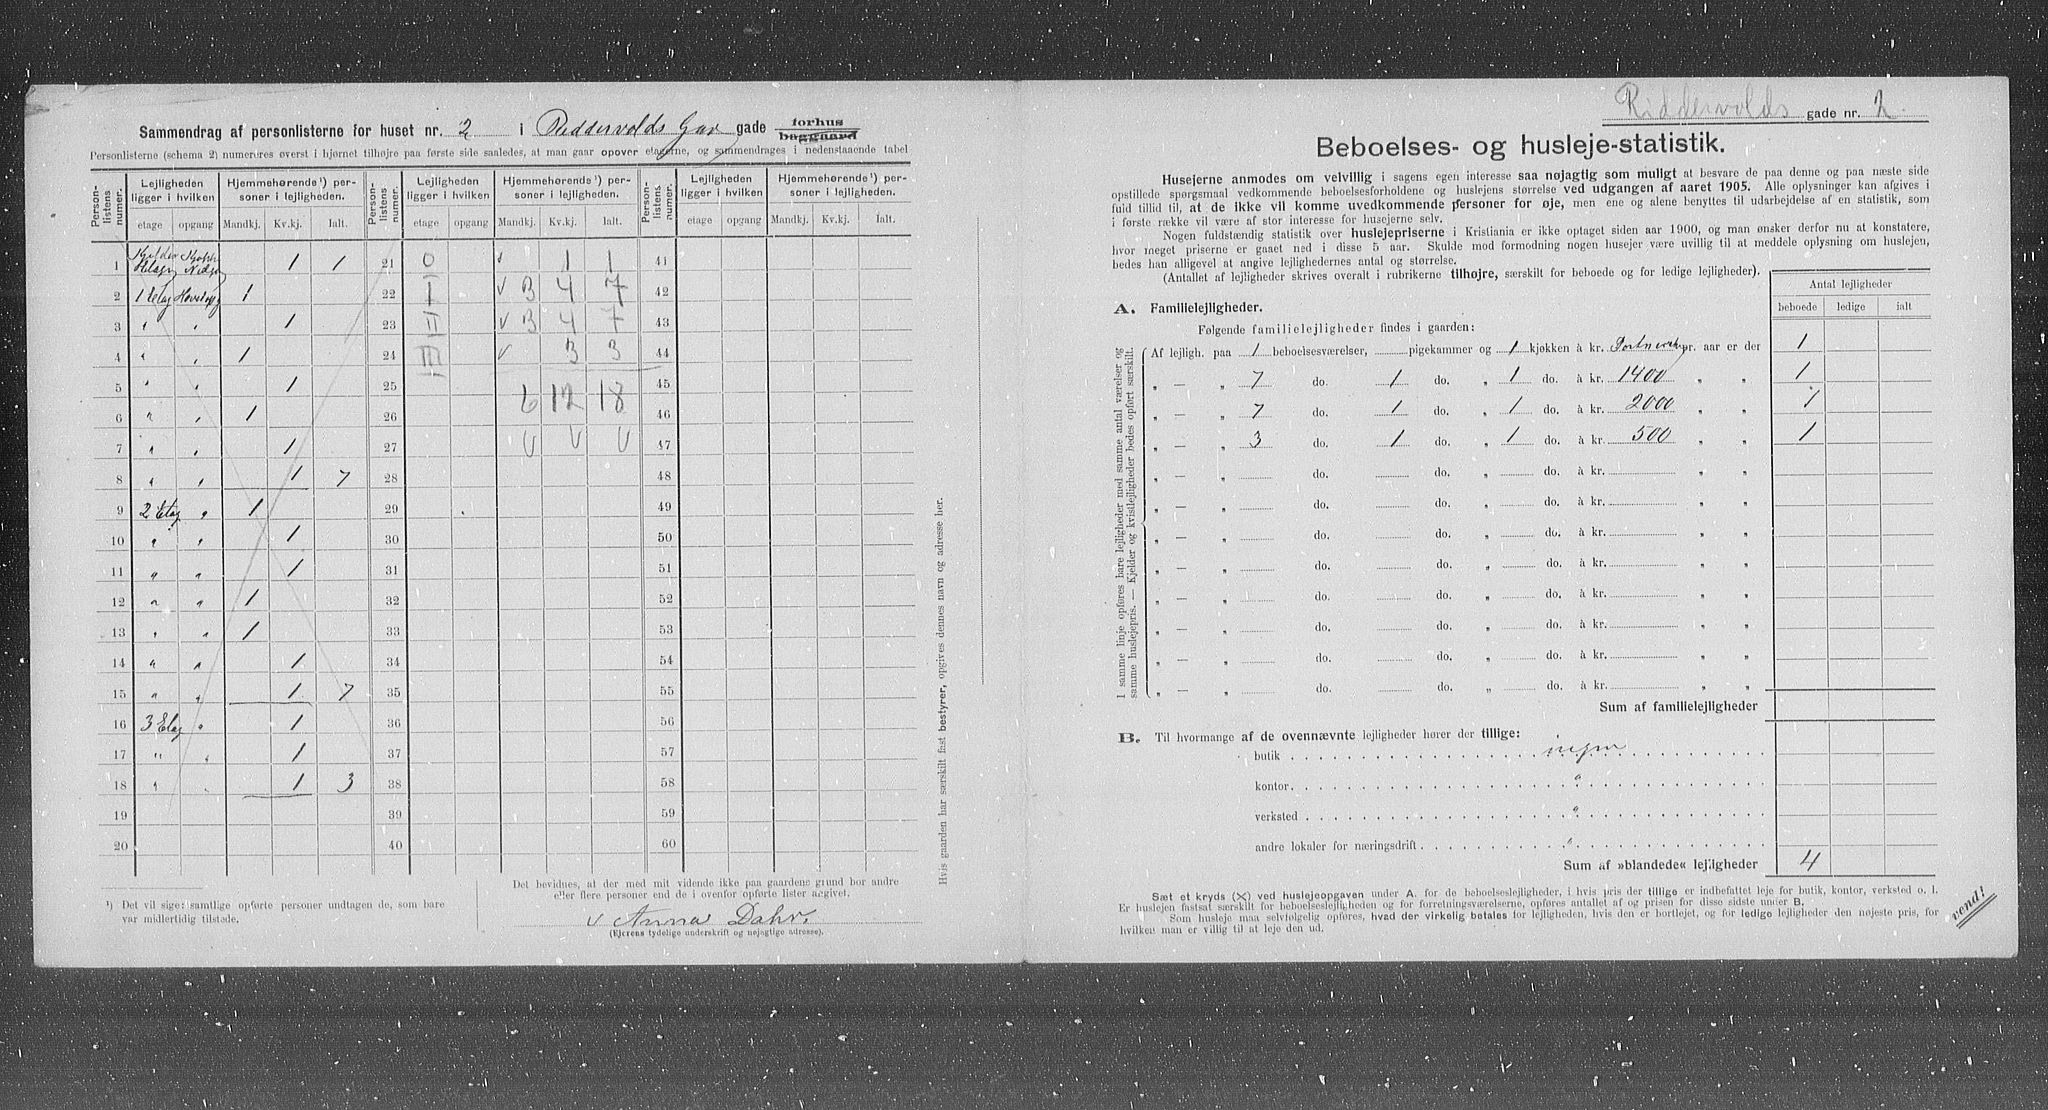 Sammendrag af personlisterne for huset nr. 2 i Riddervolds gade forhus baggaard
Personlisterne (schema 2) numereres øverst i hjørnet tilhøjre paa første side saaledes, at man gaar opover etagerne, og sammendrages i nedenstaaende tabel
Personlistens numer. Lejligheden ligger i hvilken Hjemmehørende ¹) personer i lejligheden. Personlistens numer. Lejligheden ligger i hvilken Hjemmehørende ¹) personer i lejligheden. Personlistens numer. Lejligheden ligger i hvilken Hjemmehørende ¹) personer i lejligheden.
etage opgang Mandkj. Kv.kj. Ialt. etage opgang Mandkj. Kv.kj. Ialt. etage opgang Mandkj. Kv.kj. Ialt.
1 1 1 21 0 v 1 1 41
2 1 Etag 1 22 I v 3 4 7 42
3 " " 1 23 II v 3 4 7 43
4 " " 1 24 III v 3 3 44
5 " " 1 25 6 12 18 45
6 " " 1 26 46
7 " " 1 27 v v v 47
8 " " 1 7 28 48
9 2 Etag " 1 29 49
10 " " 1 30 50
11 " " 1 31 51
12 " " 1 32 52
13 " " 1 33 53
14 " " 1 34 54
15 " " 1 7 35 55
16 3 Etag " 1 36 56
17 " " 1 37 57
18 " 1 3 38 58
19 39 59
20 40 60
¹) Det vil sige: samtlige opførte personer undtagen de, som bare
var midlertidig tilstede.
Det bevidnes, at der med mit vidende ikke paa gaardens grund bor andre
eller flere personer end de i ovenfor opførte lister angivet.
v Anna Dahr.
(Ejerens tydelige underskrift og nøjagtige adresse).
Hvis gaarden har særskilt fast bestyrer, opgives dennes navn og adresse her.
Riddervolds gade nr. 2.
Beboelses- og husleje-statistik.
Husejerne anmodes om velvillig i sagens egen interesse saa nøjagtig som muligt at besvare de paa denne og paa næste side
opstillede spørgsmaal vedkommende beboelsesforholdene og huslejens størrelse ved udgangen af aaret 1905. Alle oplysninger kan afgives i
fuld tillid til, at de ikke vil komme uvedkommende personer for øje, men ene og alene benyttes til udarbejdelse af en statistik, som
i første række vil være af stor interesse for husejerne selv.
Nogen fuldstændig statistik over huslejepriserne i Kristiania er ikke optaget siden aar 1900, og man ønsker derfor nu at konstatere,
hvor meget priserne er gaaet ned i disse 5 aar. Skulde mod formodning nogen husejer være uvillig til at meddele oplysning om huslejen,
bedes han alligevel at angive lejlighedernes antal og størrelse.
(Antallet af lejligheder skrives overalt i rubrikerne tilhøjre, særskilt for beboede og for ledige lejligheder).
Antal lejligheder
beboede ledige ialt
A. Familielejligheder.
Følgende familielejligheder findes i gaarden:
I samme linje opføres bare lejligheder med samme antal værelser og
samme huslejepris. — Kjelder og kvistlejligheder bedes opført særskilt.
Af lejligh. paa 1 beboelsesværelser, pigekammer og 1 kjøkken à kr. pr. aar er der 1
" — " 7 do. 1 do. " 1 do. à kr. 1400 " " 1
" — " 7 do. 1 do. " 1 do. à kr. 2000 " " 1
" — " 3 do. 1 do. " 1 do. à kr. 500 " " 1
" — " do. do. " do. à kr. " "
" — " do. do. " do. à kr. " "
" — " do. do. " do. à kr. " "
" — " do. do. " do. à kr. " "
" — " do. do. " do. à kr. " "
" — " do. do. " do. à kr. " "
" — " do. do. " do. à kr. " "
" — " do. do. " do. à kr. " "
Sum af familielejligheder
B. Til hvormange af de ovennævnte lejligheder hører der tillige:
butik ingen
kontor "
verksted "
andre lokaler for næringsdrift "
Sum af »blandede« lejligheder 4
Sæt et kryds (X) ved huslejeopgaven under A. for de beboelseslejligheder, i hvis pris der tillige er indbefattet leje for butik, kontor, verksted o. l.
Er huslejen fastsat særskilt for beboelseslejligheden og for forretningsværelserne, opføres antallet af og prisen for disse sidste under B.
Som husleje maa selvfølgelig opføres, hvad der virkelig betales for lejligheden, hvis den er bortlejet, og for ledige lejligheder den nøjeste pris, for
hvilken man er villig til at leje den ud.
vend!